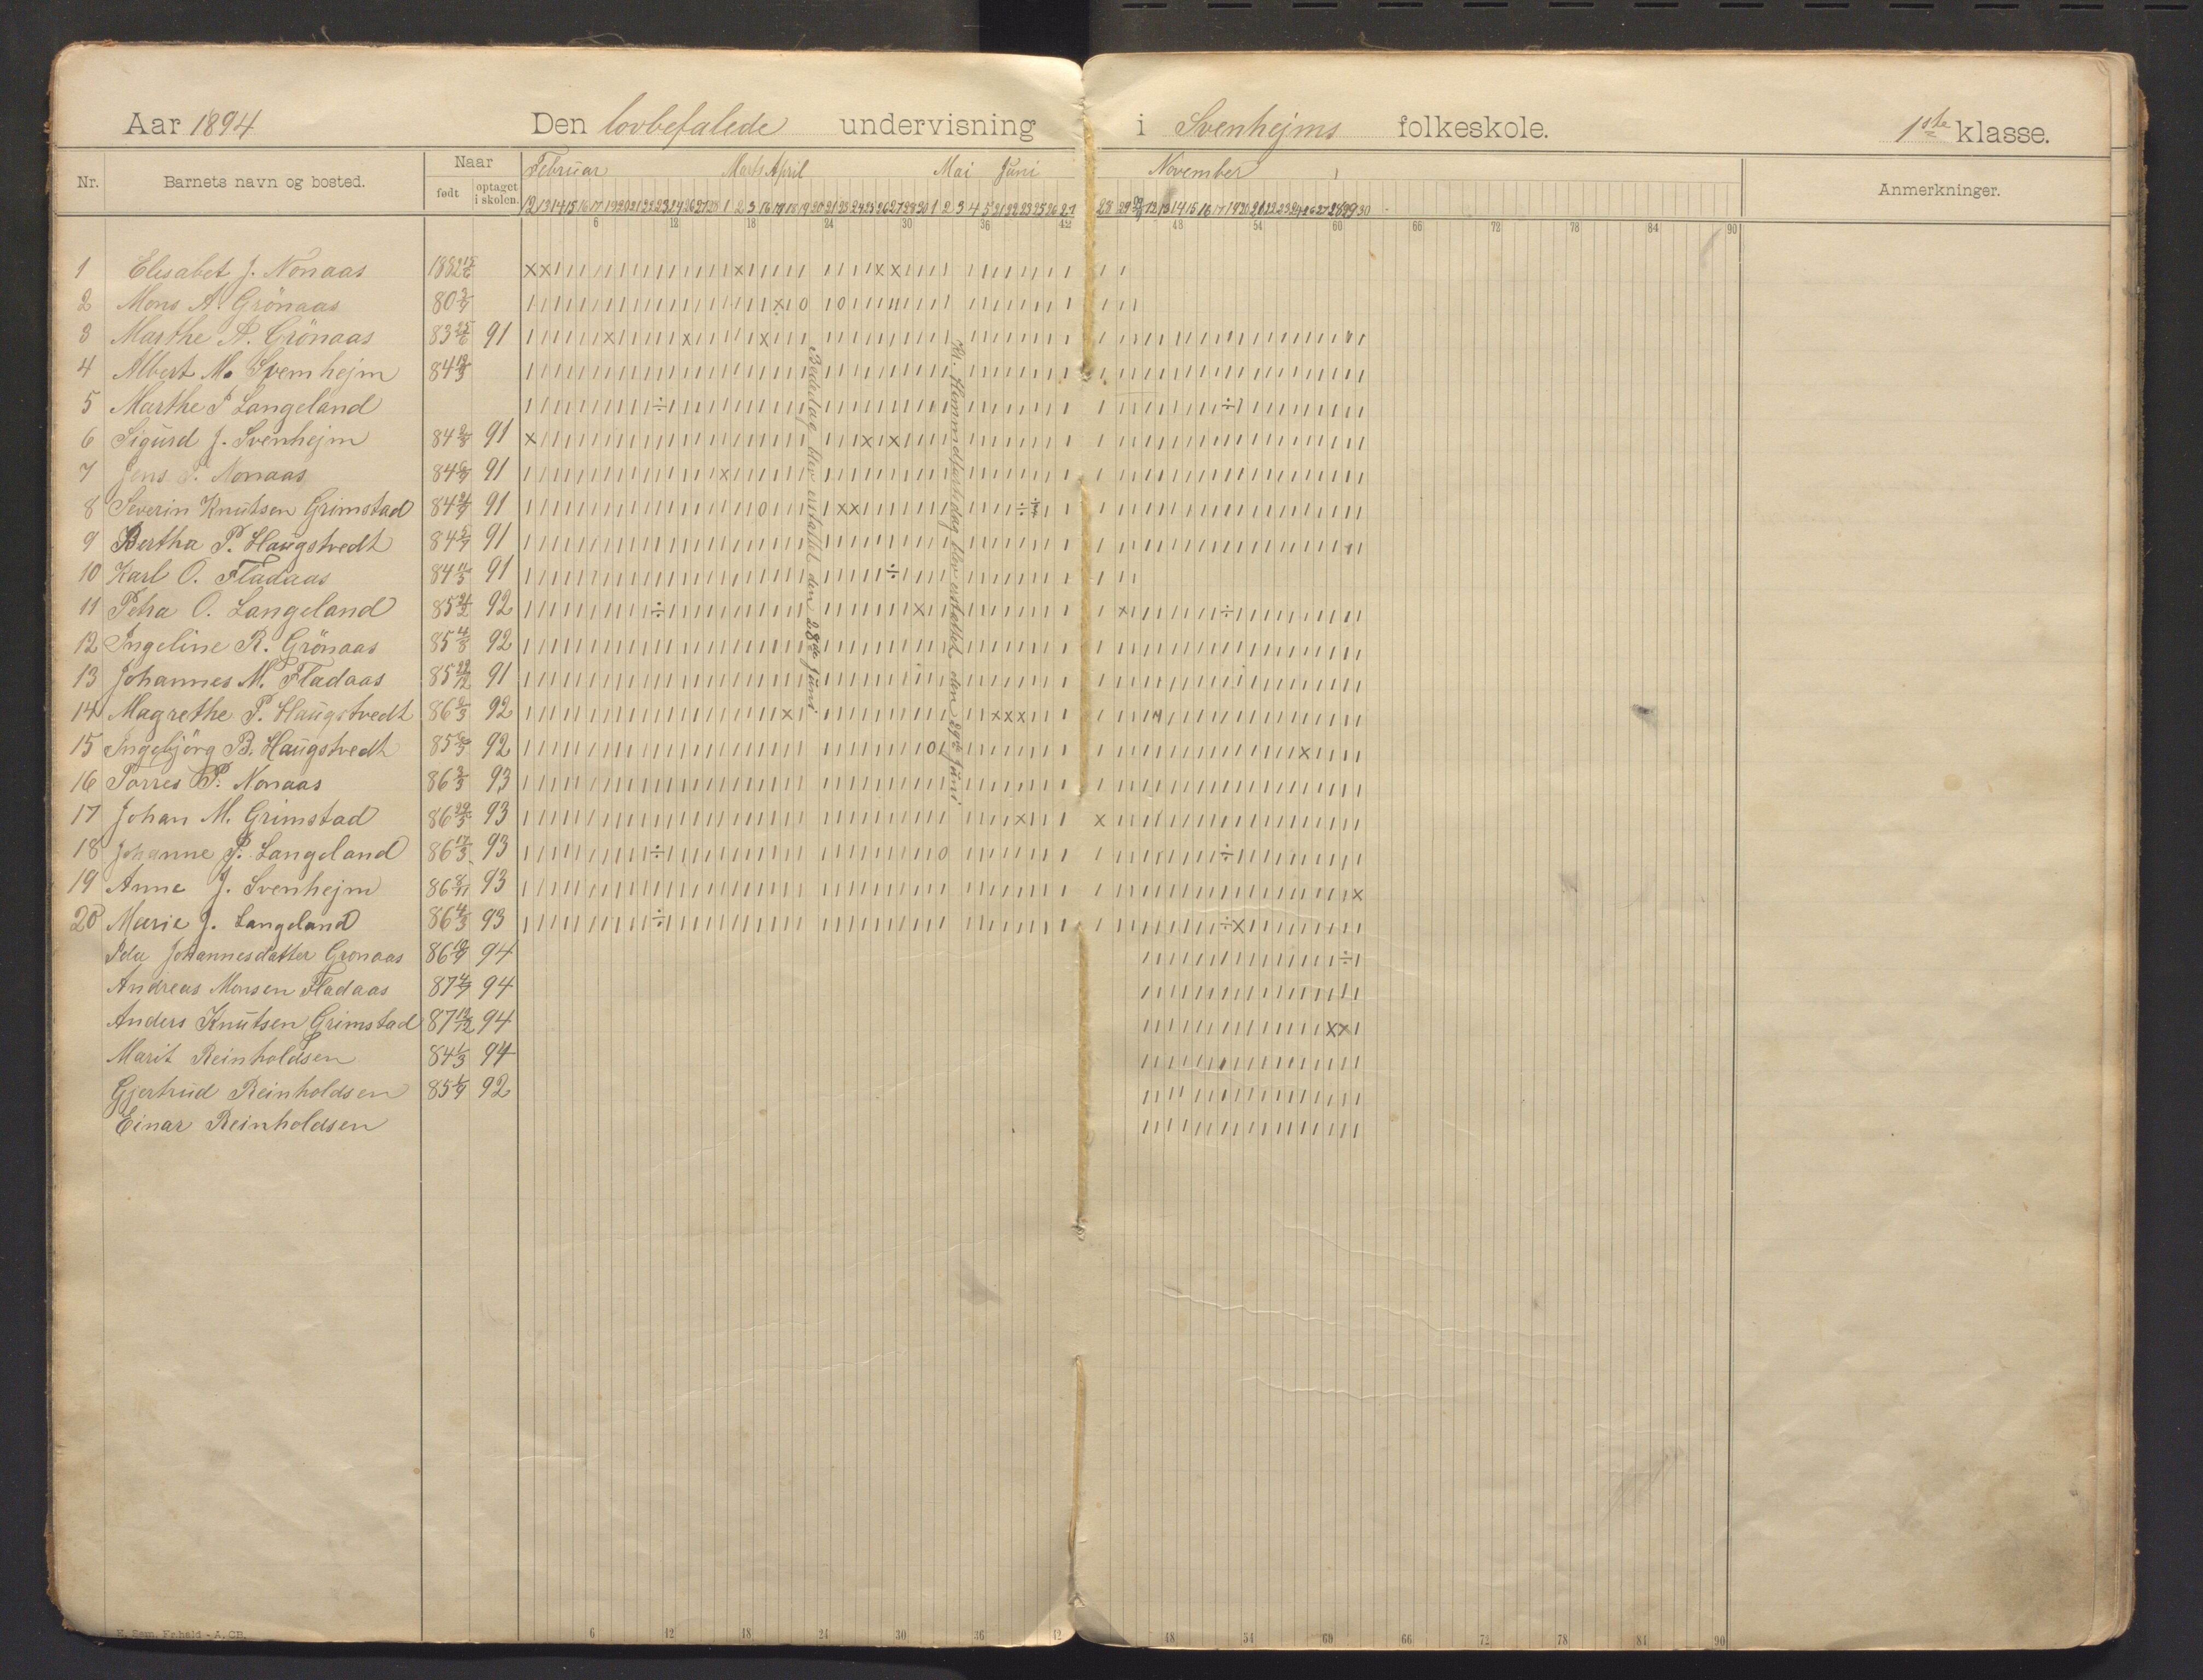 Aar 1894 Den lovbefalede undervisning i Svenhejms folkeskole. 1ste klasse.
Nr. Barnets navn og bosted. Naar født optaget i skolen. Februar Marts April Mai Juni November Anmerkninger.
12 13 14 15 16 17 19 20 21 22 23 24 26 27 28 1 2 3 16 17 18 19 20 21 23 24 25 26 27 28 30 1 2 3 4 5 21 22 23 25 26 27 28 29 12 13 14 15 16 17 19 20 21 22 23 24 26 27 28 29 30
6 12 18 24 30 36 42 48 54 60 66 72 78 84 90
1 Elisabet J. Nonaas 1882
2 Mons A. Grönaas 80
3 Marthe A. Grönaas 83 25/6 91
4 Albert M. Svenhejm 84
5 Marthe P Langeland
6 Sigurd J. Svenhejm 84 91
7 Jens P. Nonaas 84 91
8 Severin Knutsen Grimstad 84 91
9 Bertha P. Haugstvedt 84 91
10 Karl O. Fladaas 84 11/5 91
11 Petra O. Langeland 85 92
12 Ingeline R. Grönaas 85 4/8 92
13 Johannes M. Fladaas 85 22/12 91
14 Magrethe P. Haugstvedt 86 92
15 Ingebjörg B. Haugstvedt 85 92
16 Torres P. Nonaas 86 93
17 Johan M. Grimstad 86 29/3 93
18 Johanne P. Langeland 86 17/3 93
19 Anne J. Svenhejm 86 8/11 93
20 Marie J. Langeland 86 4/3 93
Ida Johannesdatter Gronaas 86 94
Andreas Monsen Fladaas 87 94
Anders Knutsen Grimstad 87 13/12 94
Marit Reinholdsen 84 1/3 94
Gjertrud Reinholdsen 85 92
Einar Reinholdsen
Bededag blev erstattet den 28de Juni
Kr. Himmelfartsdag blev erstattet den 29de Juni
6 12 18 24 30 36 42 48 54 60 66 72 78 84 90